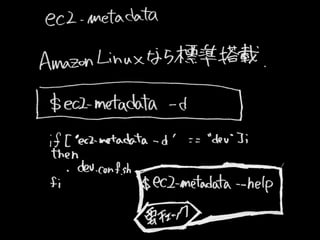 ec2-metadata
Amazon Linuxなら標準搭載.
$ec2-metadata -d
if ["ec2-metadata -d" == "dev"];
then
. dev.conf.sh
fi
$ec2-metadata --help